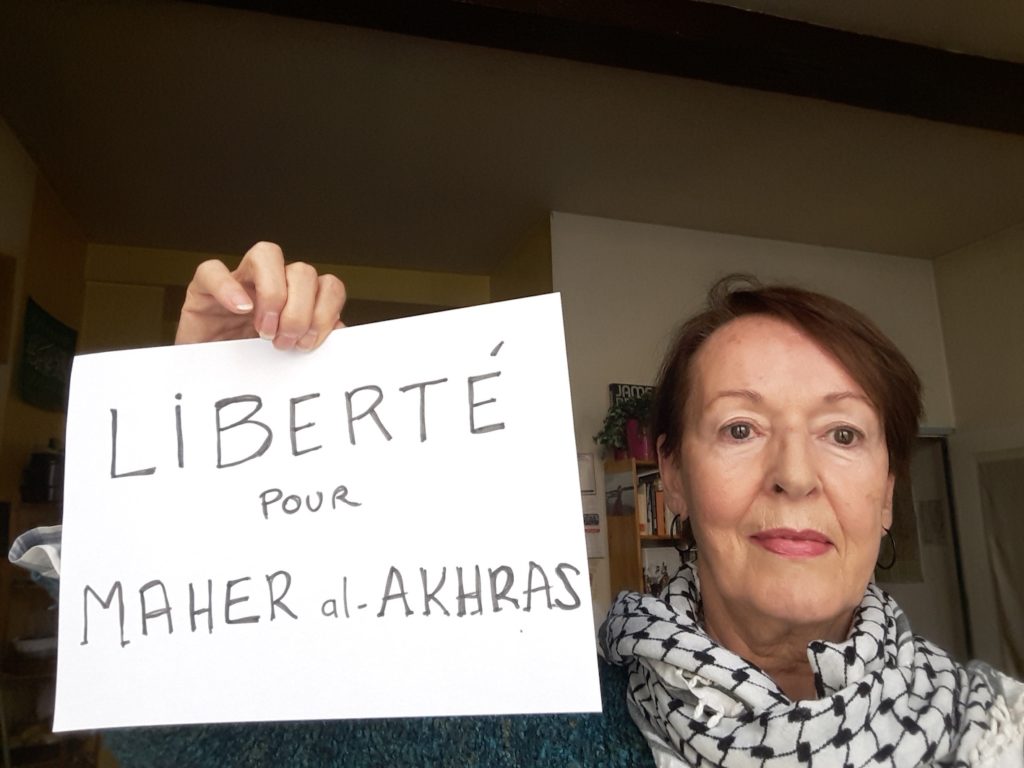 LIBERTÉ
POUR
MAHER al-AKHRAS
JAMES